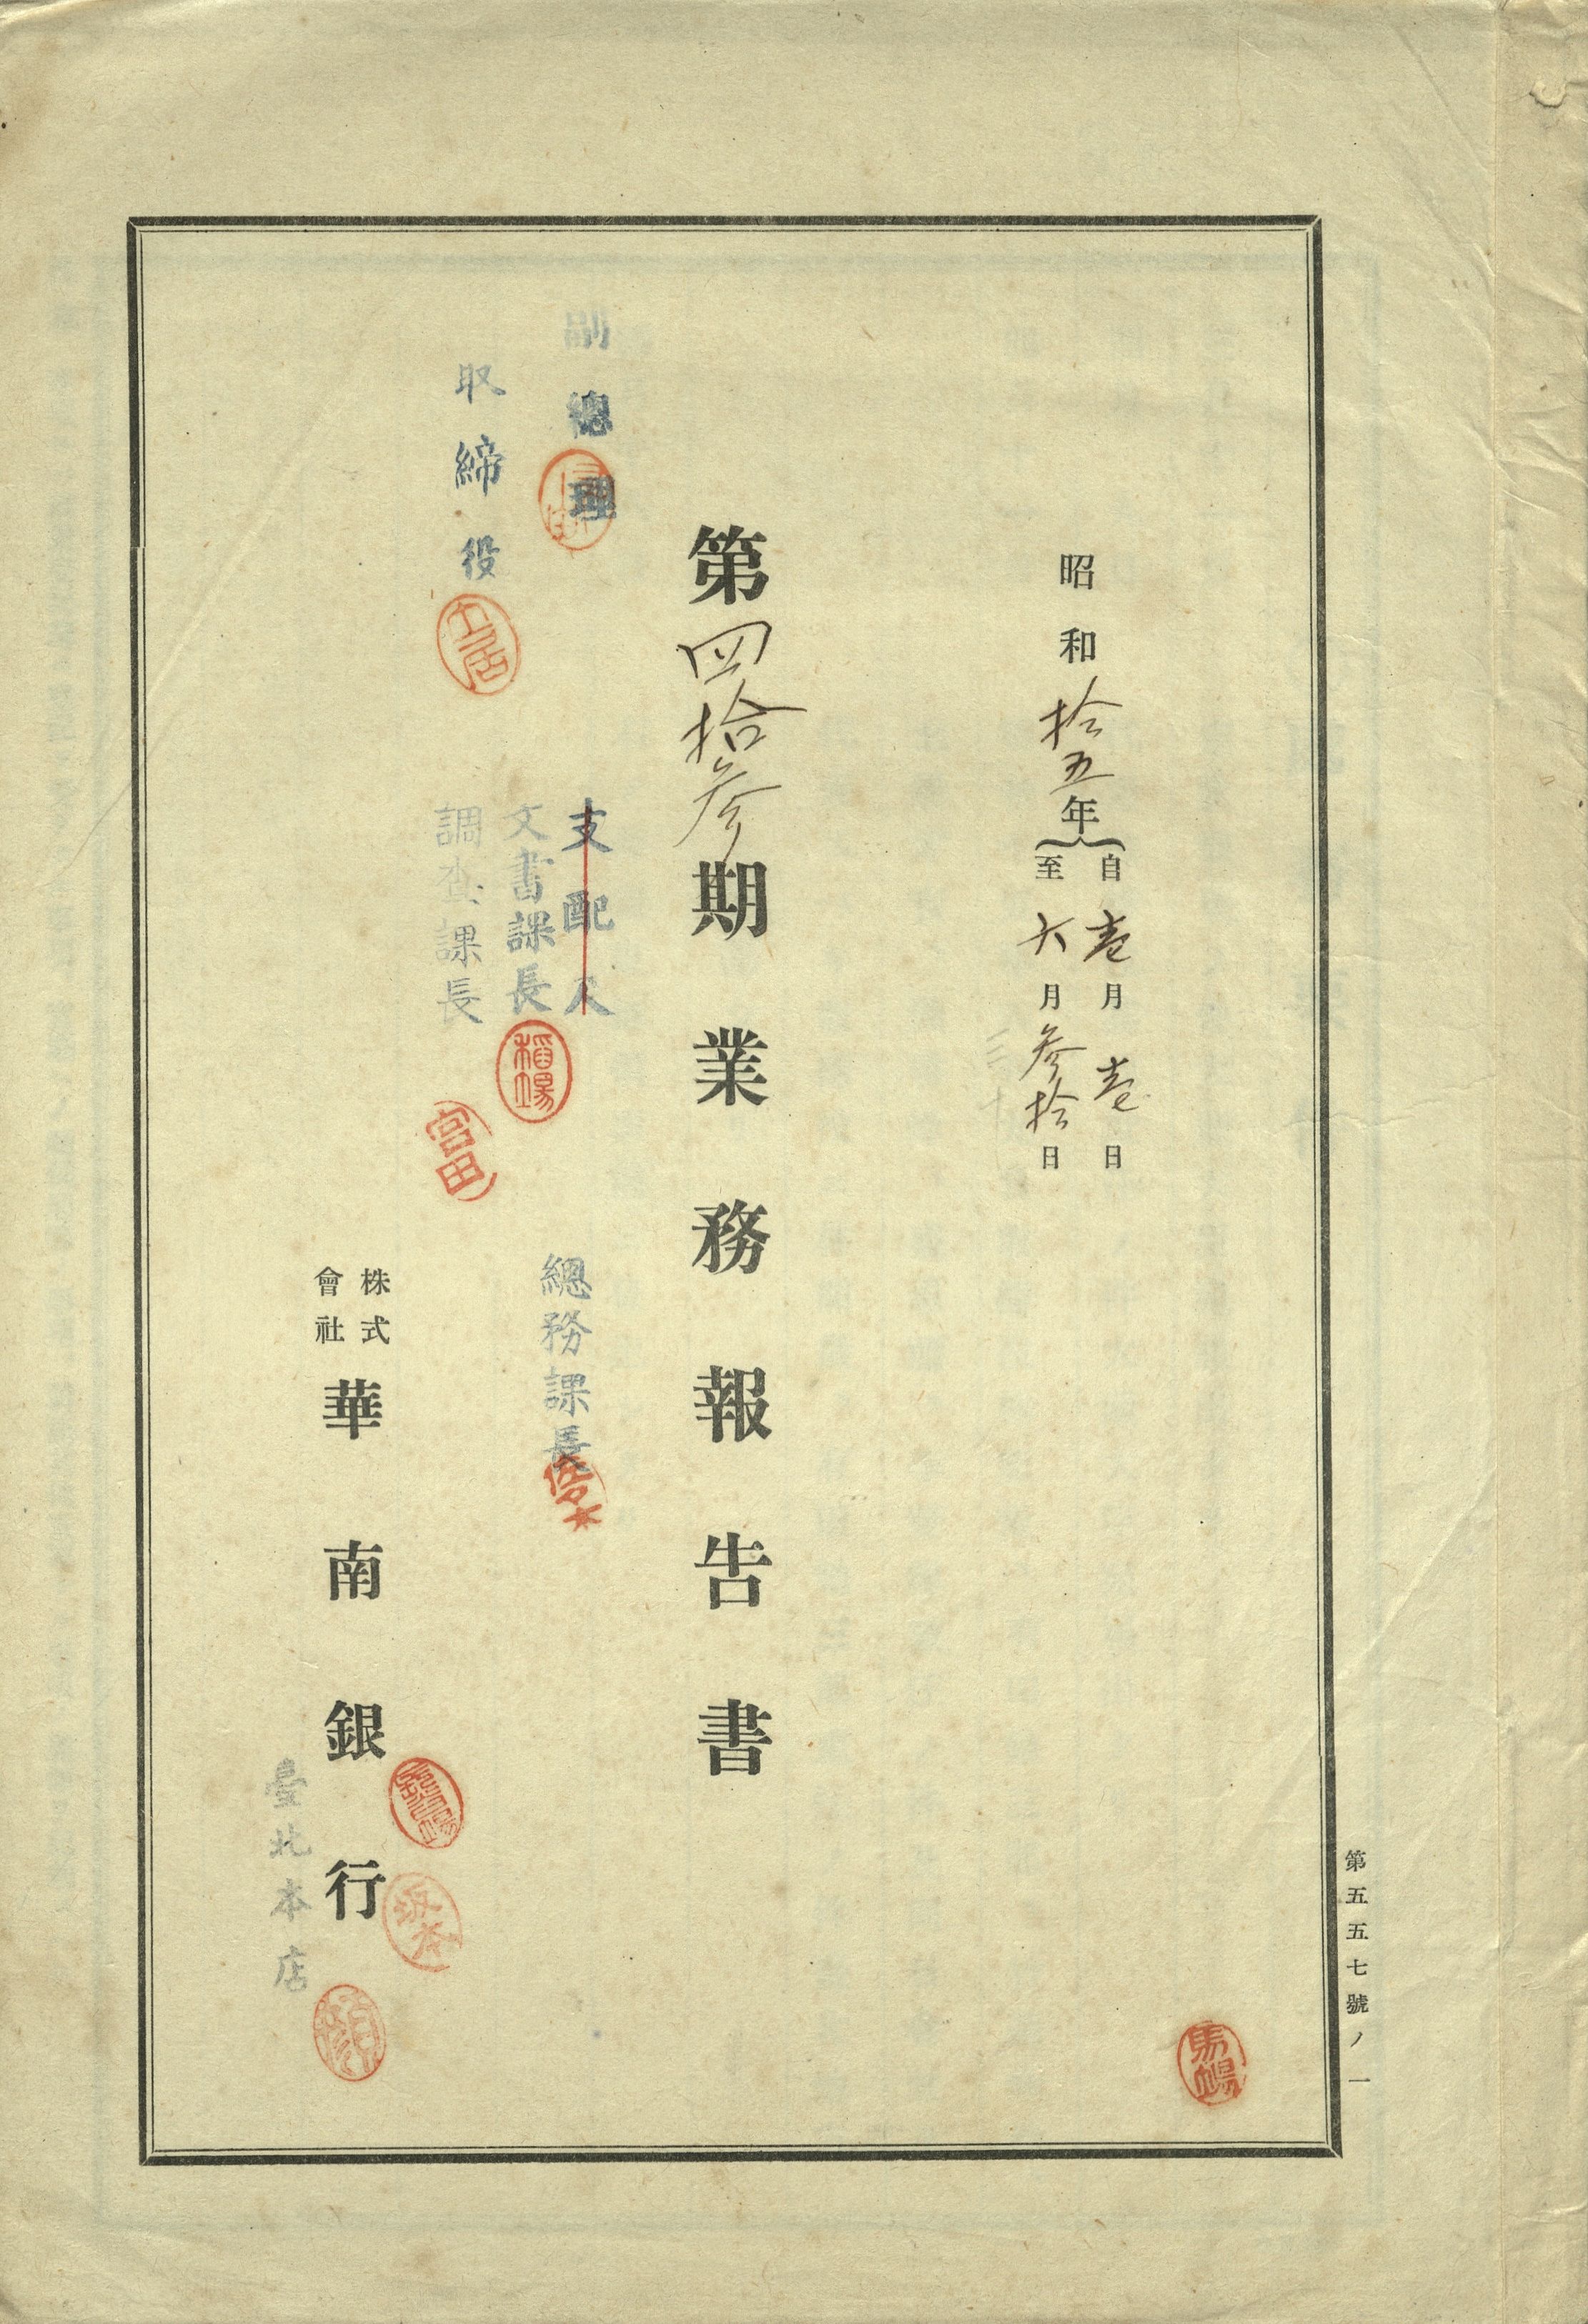 第五五七號ノ一
昭和拾五年
自壱月壱日
至六月参拾日
第四拾参期業務報告書
副總理
取締役
支配人
文書課長
調査課長
總務課長
株式會社
華南銀行
臺北本店
稻場
富田
馬場